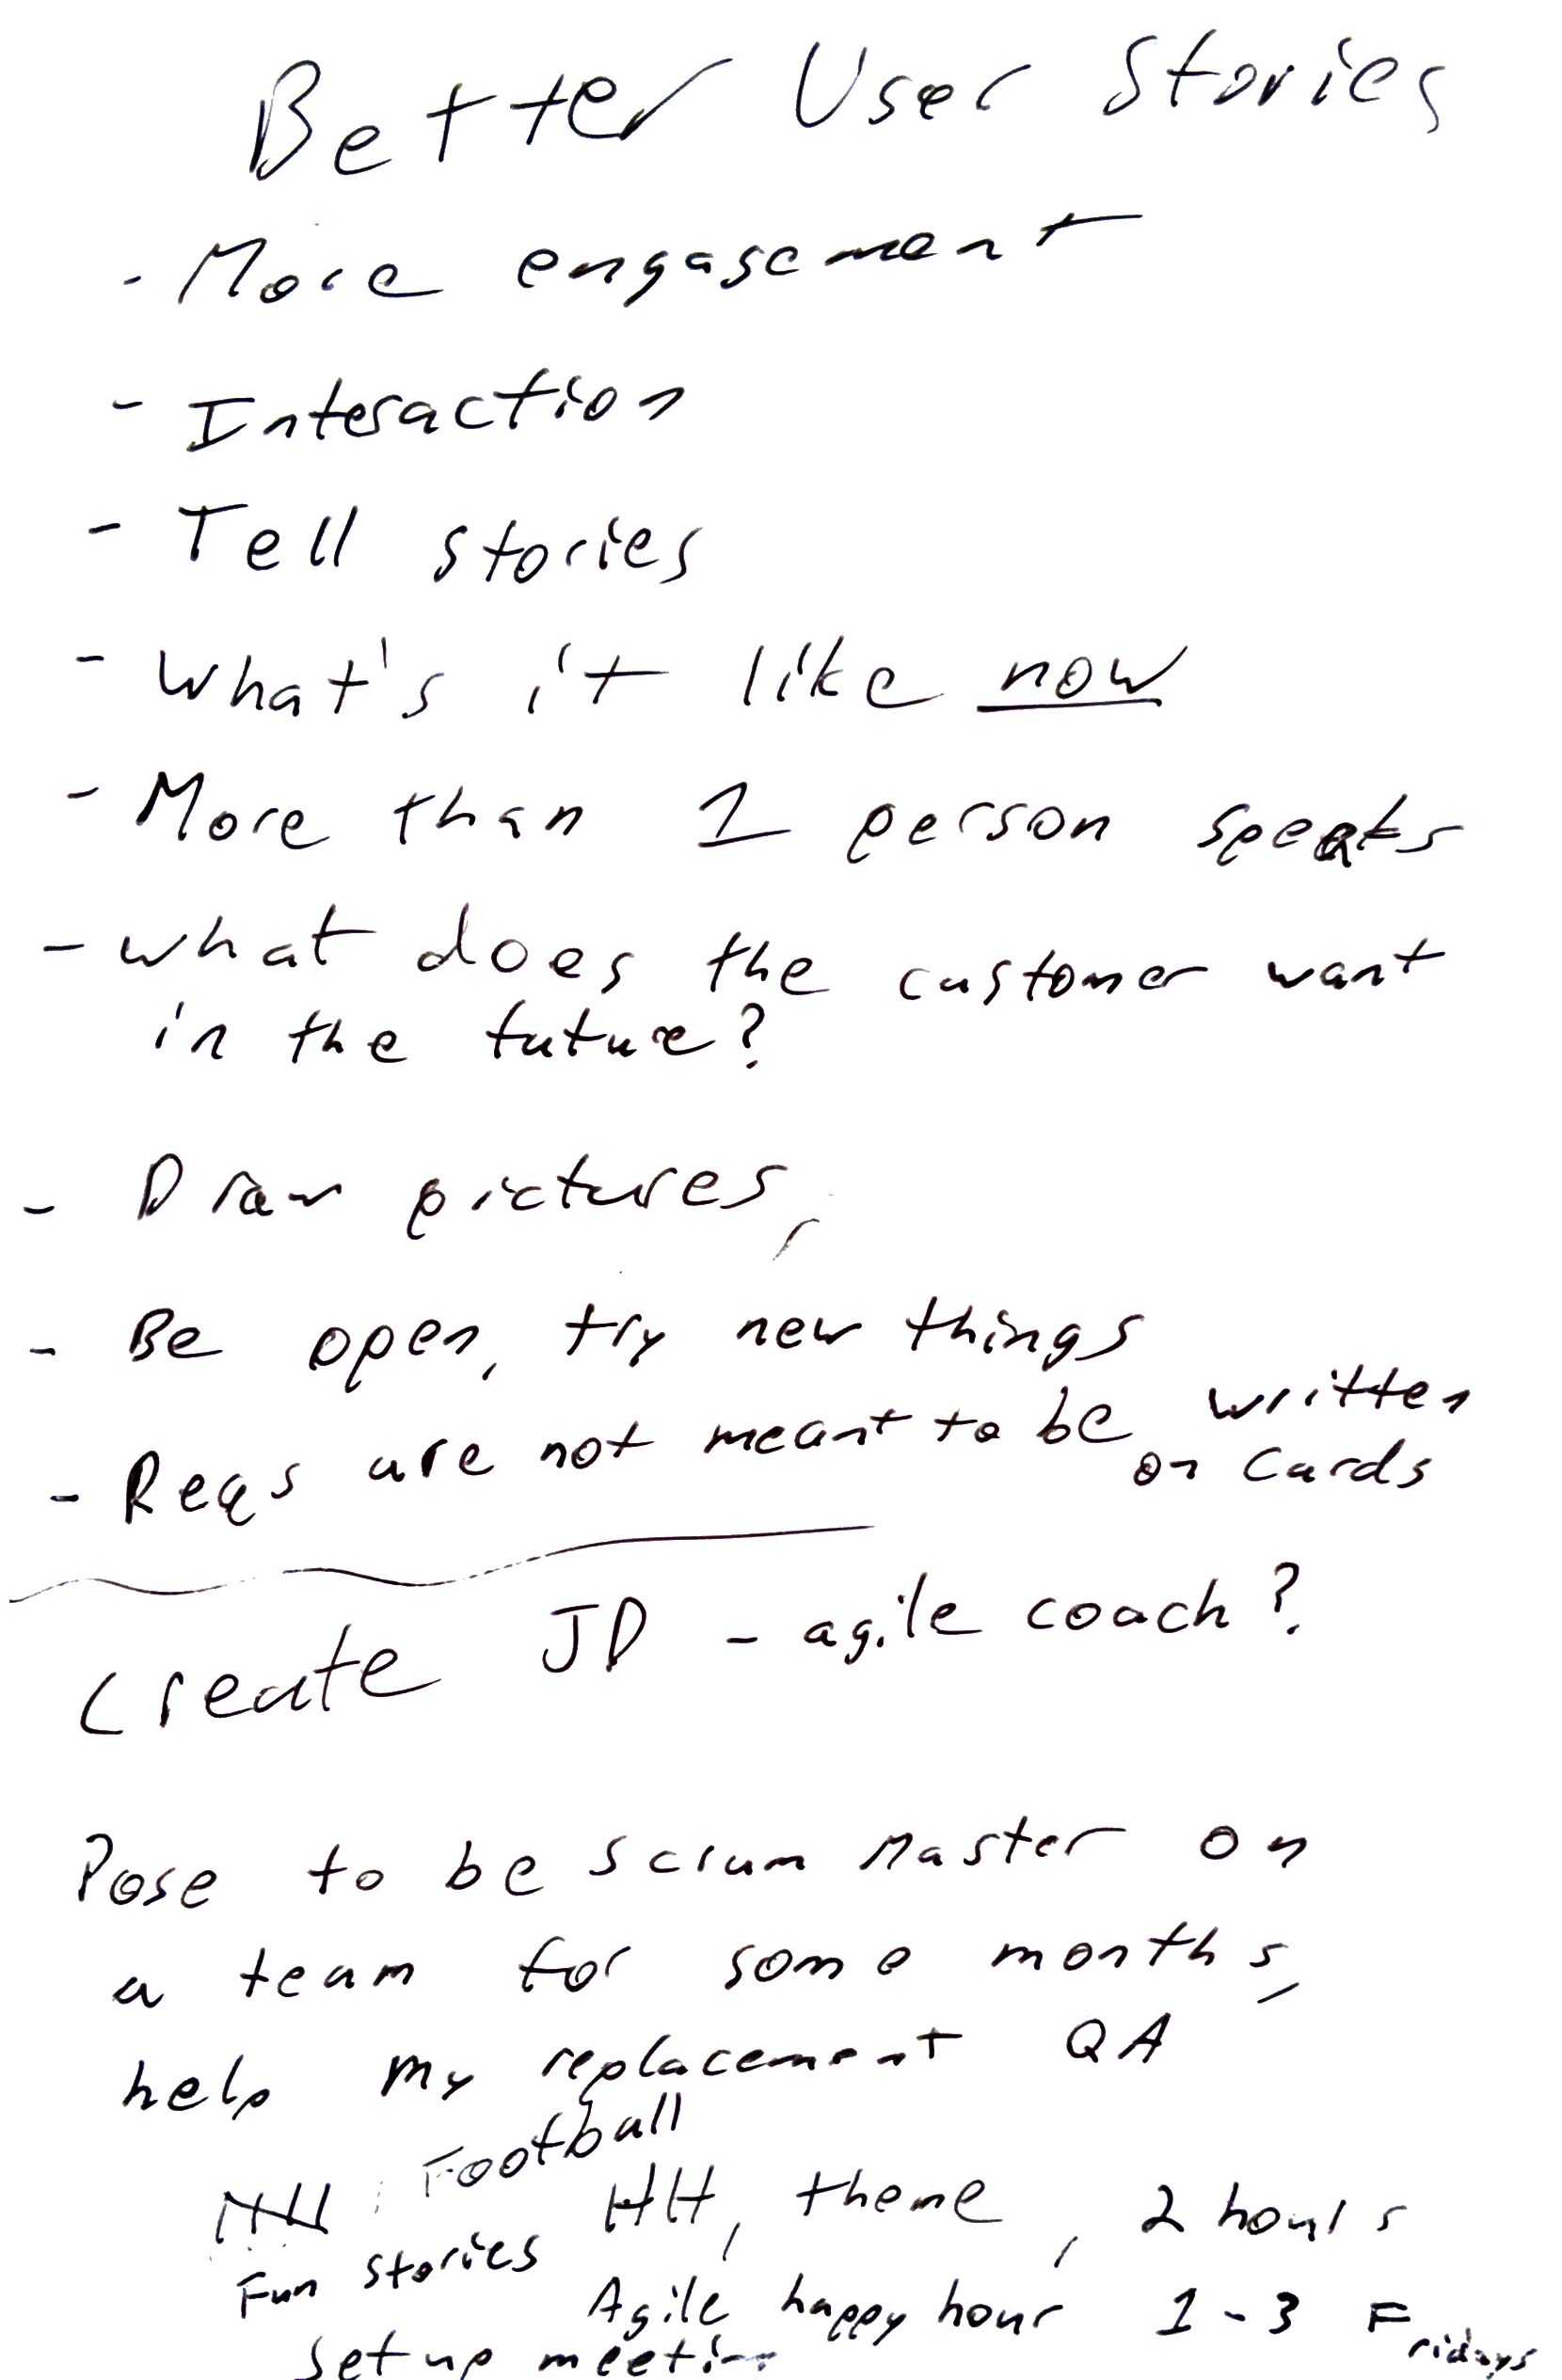 Better User Stories
- More engagement
- Interaction
- Tell stories
- What's it like now
- More than 1 person speaks
- what does the customer want
in the future?
- Draw pictures,
- Be open, try new things
- Reqs are not meant to be written
on cards
Create JD - agile coach?
Pose to be scrum master on
a team for some months,
help my replacement QA
Football
HH, theme, 2 hours
Fun stories
Agile happy hour 1-3 Fridays
Set up meeting